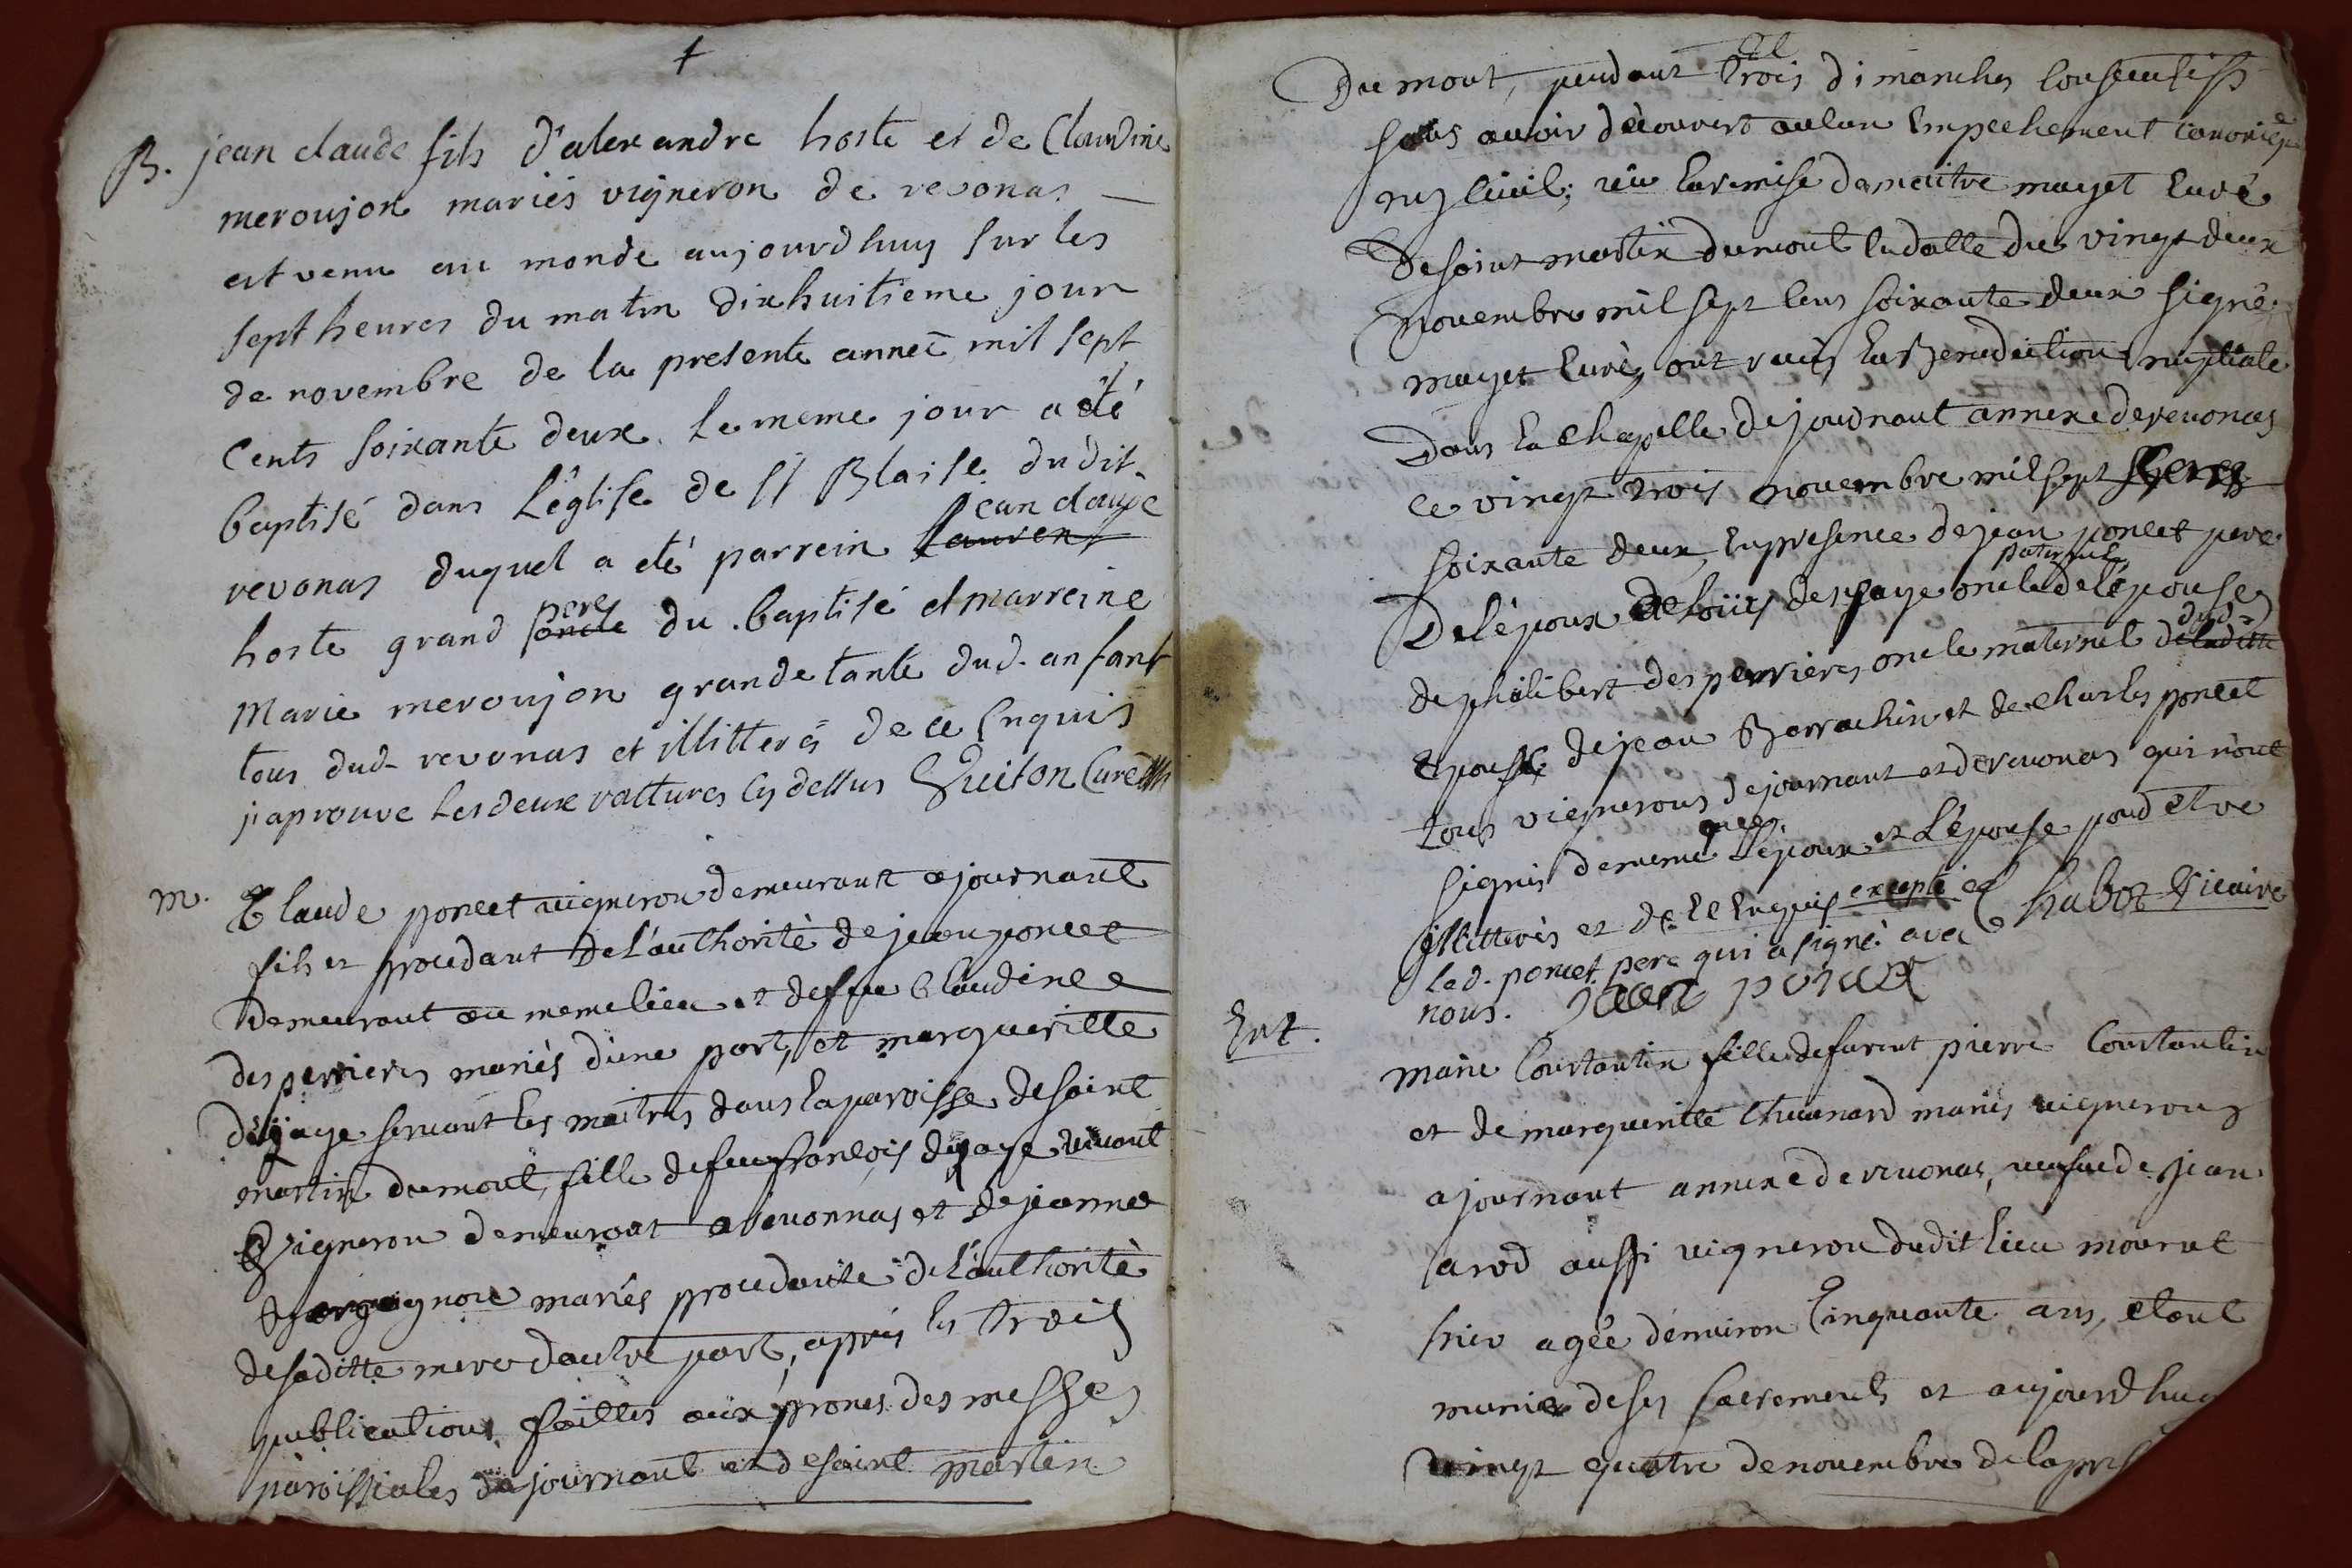 B. jean claude fils d'alexandre hoste et de Claudine
meroujon mariés vigneron de revonas
est venu au monde aujourdhuy sur les
sept heures du matin dixhuitieme jour
de novembre de la presente anneê mil sept
Cents soixante deux. le meme jour a eté
baptisé dans L'église de st Blaise dudit
jean claude
revonas duquel a eté parrein Laurent
pere
hoste grand oncle du baptisé et marreine
Marie meroujon grande tante dud. enfant
tous dud. revonas et illitterés de ce Enquis
j'aprouve les deux rattures cy dessus Guiton Curé
m. Claude poncet vigneron demeurant a journant
fils et procedant de l'authorité de jean poncet
demeurant au meme lieu et de feue Claudine
desperrieres mariés d'une part, et margueritte
servant les maitres dans la paroisse de saint
martin dumont, fille de feu françois vivant
Vigneron demeurant a revonnas et de jeanne
mariés procedante de l'authorité
de saditte mere d'autre part, après les trois
publications faittes aux prones des messes
paroissiales de journant et de saint martin
Dumont, pendant trois dimanches consecutifs
sans avoir découvert aucun Empechement canonique
ny Civil; vëu la remise de maitre mayet Curé
de saint martin dumont en datte du vingt deux
novembre mil sept cens soixante deux signé
mayet Curé, ont reçus la Benediction nuptiale
Dans la Chapelle de journant annexe de revonas
ce vingt trois novembre mil sept cens
soixante deux, En presence de jean poncet pere
paternel
De l'époux de loüis oncle de l'épouse
dud.
de philibert desperrieres oncle maternel de laditte
Epouse, de jean Borrachin et de Charles poncet
tous vignerons de journant et de revonas qui n'ont
que
signés de meme L'époux et L'épouse pour etre
illitterés et de ce Enquis excepté Chabot Vicaire
led. poncet pere qui a signé avec
nous. jean poncet
Ent. marie Constantin fille defurent pierre Constantin
et de margueritte thevenard mariés vignerons
a journant annexe de revonas, veufve de jean
arod aussi vigneron dudit lieu mourut
hier agée d'environ Cinquante ans, etant
munie de ses sacrements et aujourdhuy
vingt quatre de novembre de la